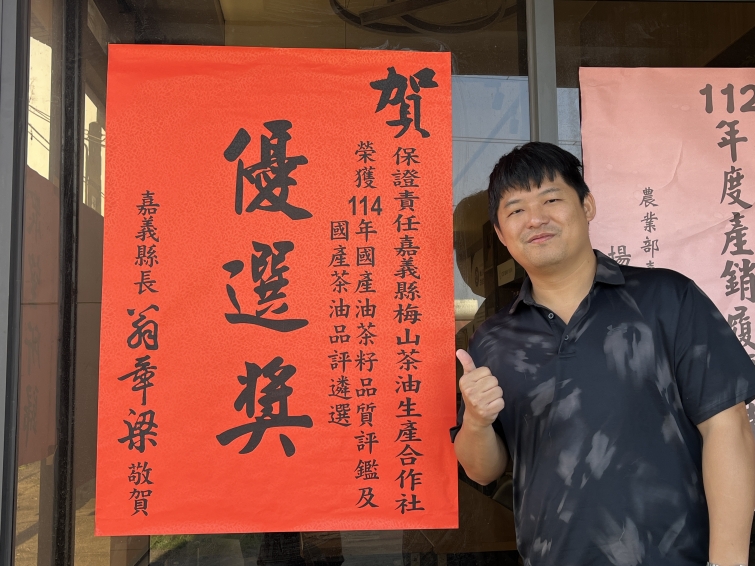 賀
保證責任嘉義縣梅山茶油生產合作社
榮獲114年國產油茶籽品質評鑑及
國產茶油品評遴選
優選獎
嘉義縣長 翁章梁 敬賀
112年度產銷履
農業部
楊